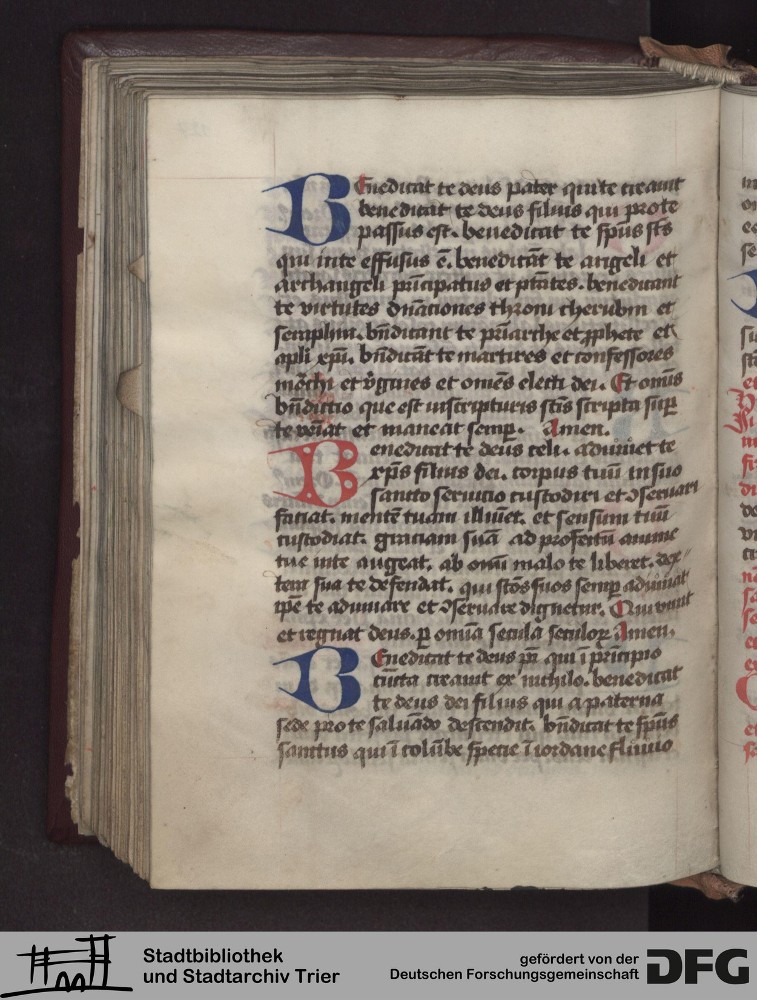 Benedicat te deus pater qui te creauit
benedicat te deus filius qui pro te
passus est. benedicat te sp̄us sc̄s
qui in te effusus ē. benedicāt te angeli et
archangeli prīcipatus et ptātes. benedicant
te virtutes dn̄aciones throni cherubin et
seraphin. bn̄dicant te pr̄iarche et ꝓphete et
apl̄i xp̄i. bn̄dicāt te martires et confessores
mōchi et v̄gines et om̄es electi dei. Et om̄is
bn̄dictio que est in scripturis sc̄is scripta suꝑ
te veīat et maneat semꝑ. Amen.
Benedicat te deus celi. adiuuet te
xp̄s filius dei. corpus tuū in suo
sancto seruicio custodiri et ꝯseruari
faciat. mentē tuam illuīet. et sensum tuū
custodiat. graciam suā ad profectū anime
tue in te augeat. ab om̄i malo te liberet. dex-
tera sua te defendat. qui sc̄os suos semꝑ adiuuat
ip̄e te adiuuare et ꝯseruare dignetur. Qui viuit
et regnat deus. ꝑ om̄ia secula seculoꝝ Amen.
Benedicat te deus pr̄ qui ī prīcipio
cūcta creauit ex nichilo. benedicat
te deus dei filius qui a paterna
sede pro te saluādo descendit. bn̄dicat te sp̄us
sanctus qui ī colūbe specie ī iordane fluuio
Stadtbibliothek
und Stadtarchiv Trier
gefördert von der
Deutschen Forschungsgemeinschaft
DFG